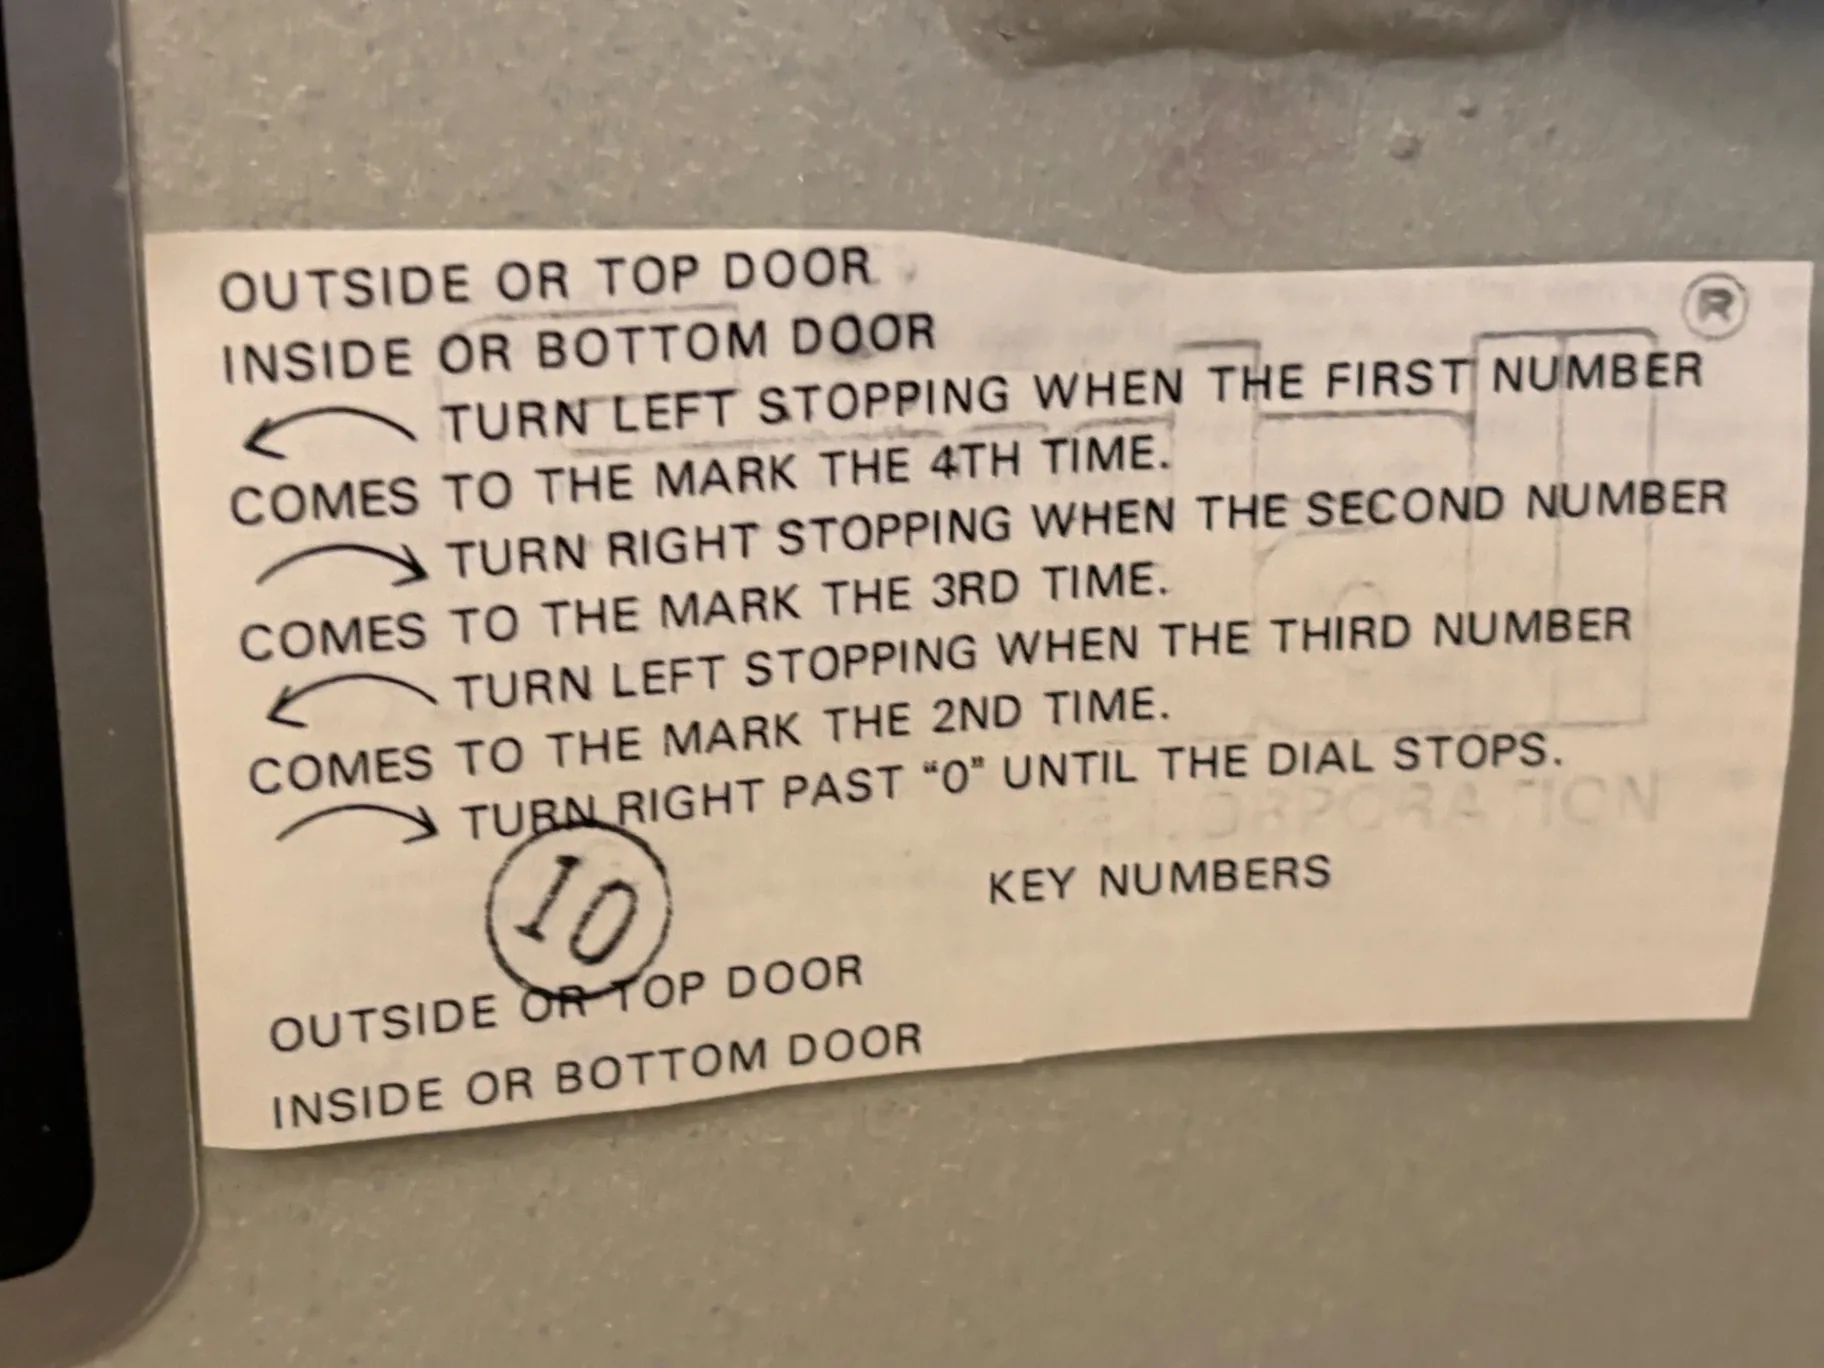 OUTSIDE OR TOP DOOR
®
INSIDE OR BOTTOM DOOR
TURN LEFT STOPPING WHEN THE FIRST NUMBER
COMES TO THE MARK THE 4TH TIME.
TURN RIGHT STOPPING WHEN THE SECOND NUMBER
COMES TO THE MARK THE 3RD TIME.
TURN LEFT STOPPING WHEN THE THIRD NUMBER
COMES TO THE MARK THE 2ND TIME.
TURN RIGHT PAST "0" UNTIL THE DIAL STOPS.
10
KEY NUMBERS
OUTSIDE OR TOP DOOR
INSIDE OR BOTTOM DOOR